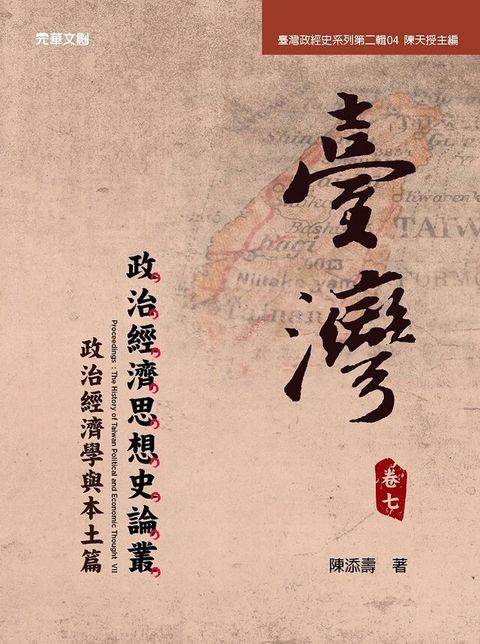 元華文創
臺灣政經史系列第二輯04 陳天授主編
臺灣
卷七
政治經濟思想史論叢
Proceedings : The History of Taiwan Political and Economic Thought VII
政治經濟學與本土篇
陳添壽 著
TAIW
4013
Niitaka